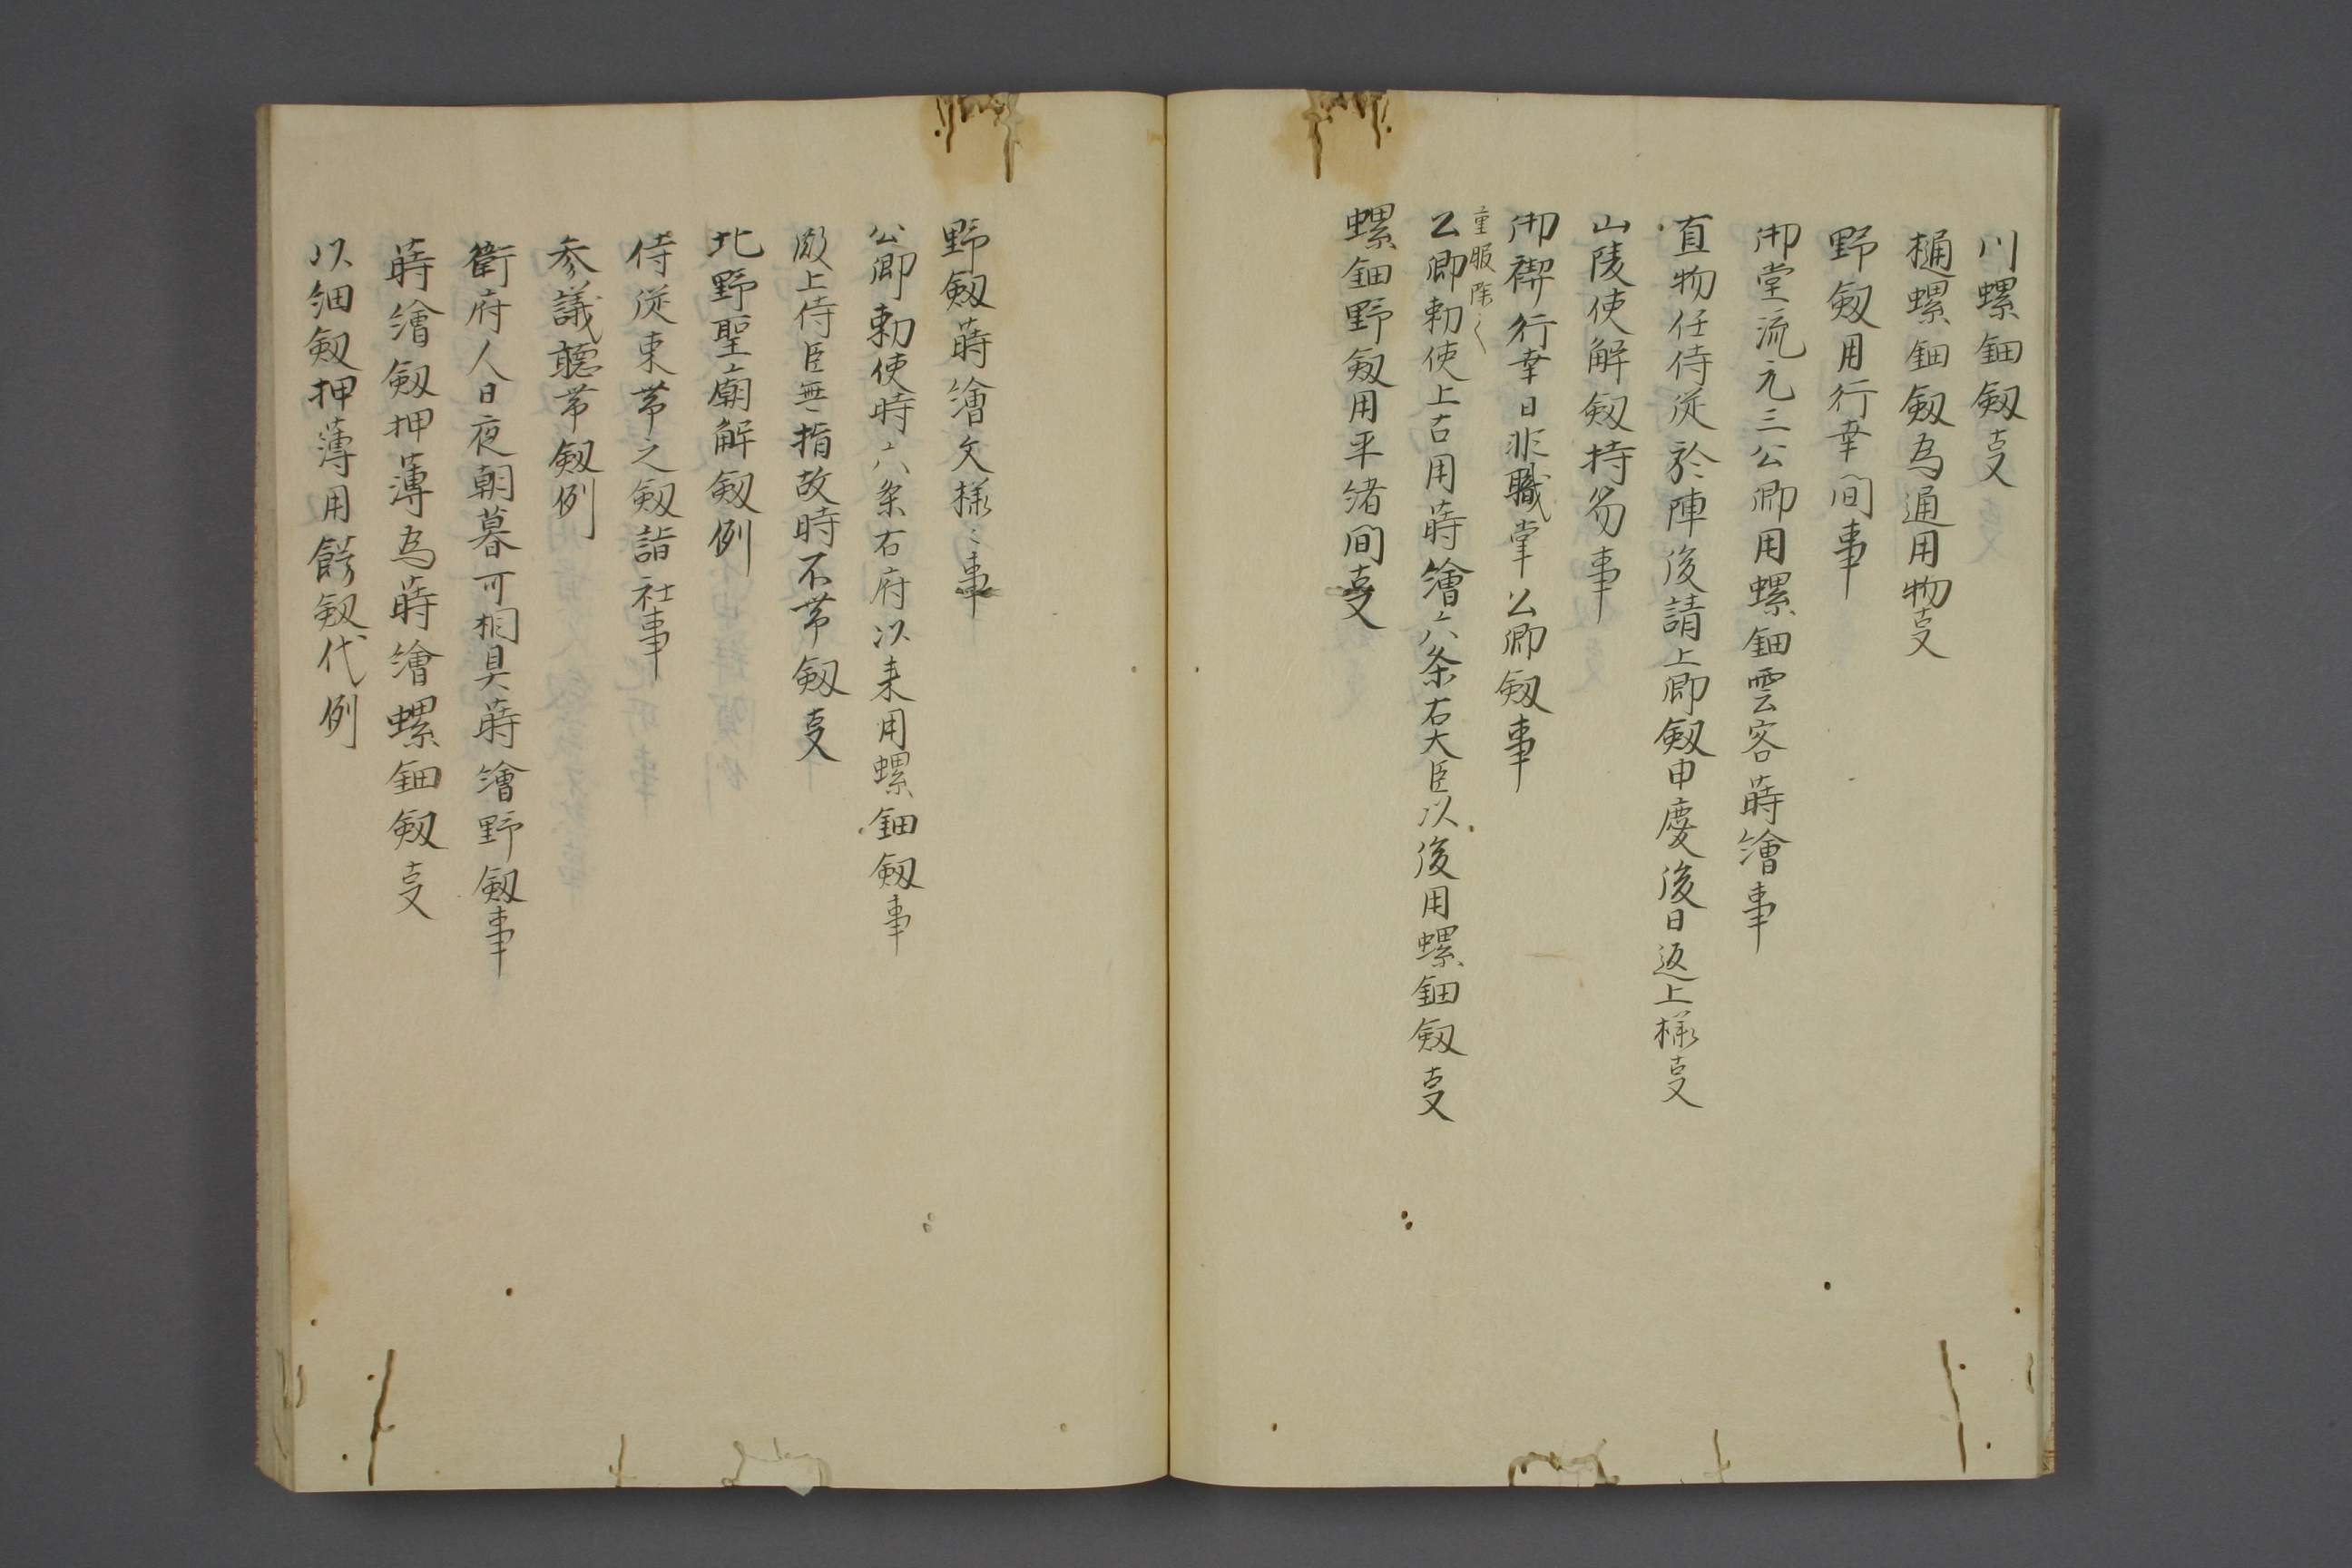 川螺鈿釼㕝
樋螺鈿釼為通用物㕝
野釼用行幸間事
御堂流元三公卿用螺鈿雲客蒔繪事
直物任侍従於陣後請上卿釼申慶後日返上様㕝
山陵使解釼持笏事
御禊行幸日非職掌公卿釼事
重服除之
公卿勅使上古用蒔繪六条右大臣以後用螺鈿釼㕝
螺鈿野釼用平緒間㕝
野釼蒔繪文様々事
公卿勅使時六条右府以来用螺鈿釼事
殿上侍臣無指故時不帯釼㕝
北野聖廟解釼例
侍従束帯之釼詣社事
参議聴帯釼例
衛府人日夜朝暮可相具蒔繪野釼事
蒔繪釼押薄為蒔繪螺鈿釼㕝
以細釼押薄用餝釼代例